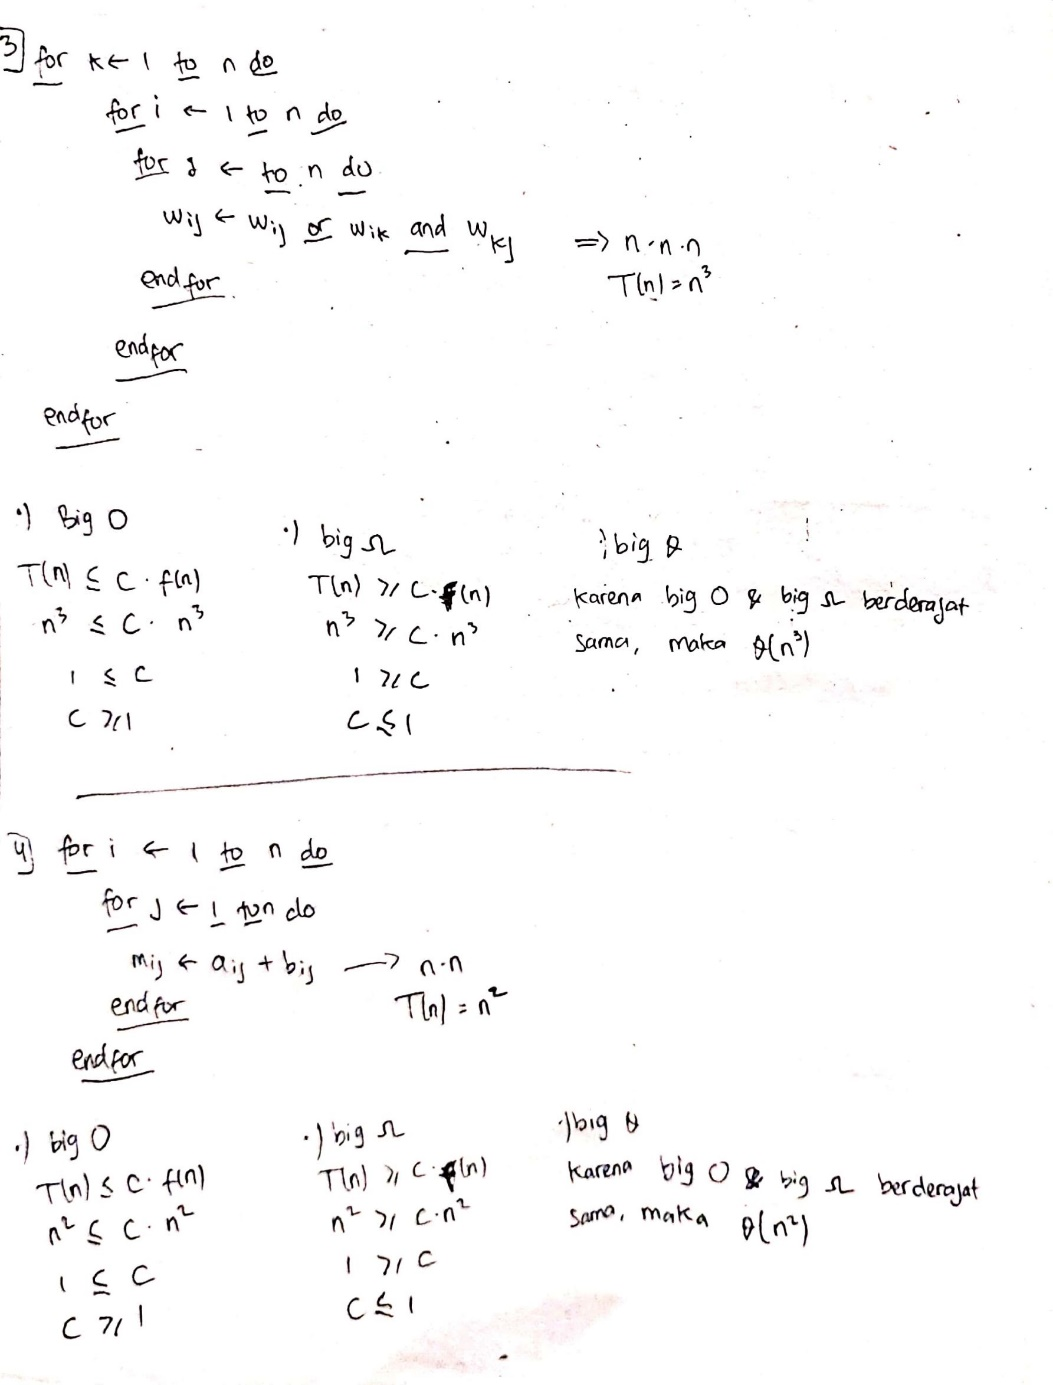 3] for k ← 1 to n do
for i ← 1 to n do
for j ← to n do
wij ← wij or wik and wkj ⇒ n·n·n
endfor T(n) = n³
endfor
endfor
·) Big O
T(n) ≤ C · f(n)
n³ ≤ C · n³
1 ≤ C
C ≥ 1
·) big Ω
T(n) ≥ C · f(n)
n³ ≥ C · n³
1 ≥ C
C ≤ 1
·) big θ
karena big O & big Ω berderajat
sama, maka θ(n³)
4] for i ← 1 to n do
for j ← 1 to n do
mij ← aij + bij → n·n
endfor T(n) = n²
endfor
·) big O
T(n) ≤ C · f(n)
n² ≤ C · n²
1 ≤ C
C ≥ 1
·) big Ω
T(n) ≥ C · f(n)
n² ≥ C · n²
1 ≥ C
C ≤ 1
·) big θ
karena big O & big Ω berderajat
sama, maka θ(n²)